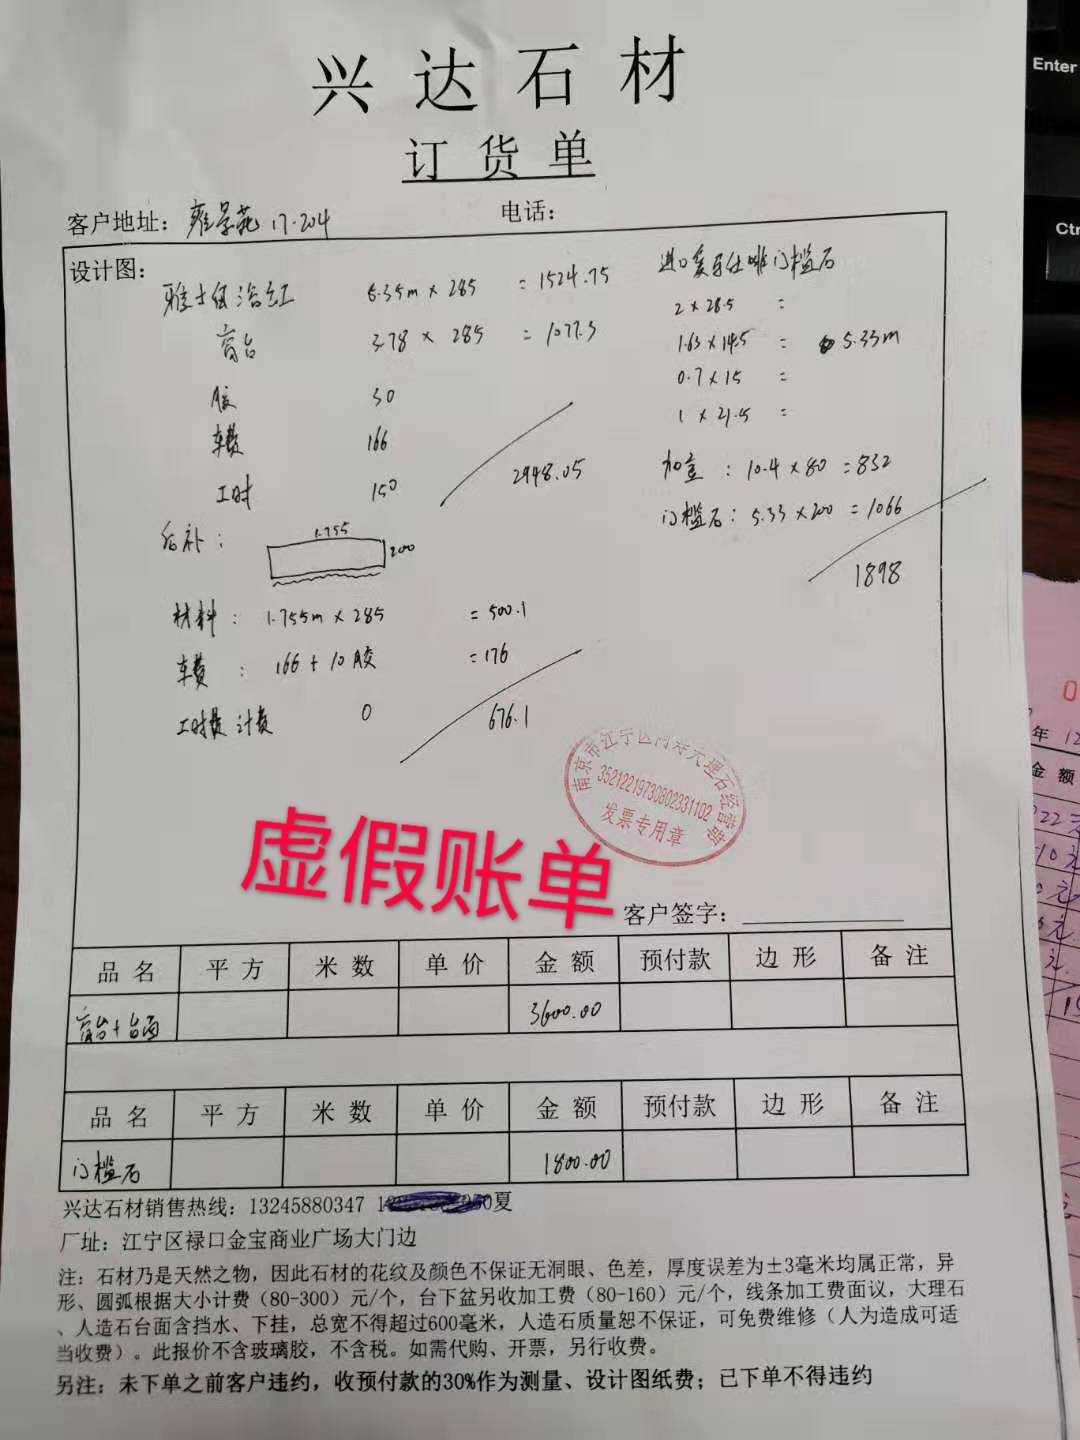 兴达石材
订货单
客户地址: 雍景苑 17-204 电话:
设计图:
雅士伯 浴缸 5.35m × 285 = 1524.75
窗台 3.78 × 285 = 1077.3
胶 30
车费 166
工时 150
2948.05
后补:
1.755
200
材料: 1.755m × 285 = 500.1
车费: 166 + 10胶 = 176
工时费 计费 0
676.1
进口 门槛石
2 × 28.5 =
1.63 × 14.5 = 5.33m
0.7 × 15 =
1 × 21.5 =
加宽: 10.4 × 80 = 832
门槛石: 5.33 × 200 = 1066
1898
南京市江宁区 大理石经营部
35212219730802331102
发票专用章
虚假账单
客户签字:
品名 平方 米数 单价 金额 预付款 边形 备注
窗台+台面 3600.00
品名 平方 米数 单价 金额 预付款 边形 备注
门槛石 1800.00
兴达石材销售热线: 13245880347 夏
厂址: 江宁区禄口金宝商业广场大门边
注: 石材乃是天然之物, 因此石材的花纹及颜色不保证无洞眼、色差, 厚度误差为±3毫米均属正常, 异
形、圆弧根据大小计费 (80-300) 元/个, 台下盆另收加工费 (80-160) 元/个, 线条加工费面议, 大理石
、人造石台面含挡水、下挂, 总宽不得超过600毫米, 人造石质量恕不保证, 可免费维修 (人为造成可适
当收费) 。此报价不含玻璃胶, 不含税。如需代购、开票, 另行收费。
另注: 未下单之前客户违约, 收预付款的30%作为测量、设计图纸费; 已下单不得违约
Enter
Ctr
年 12
金额